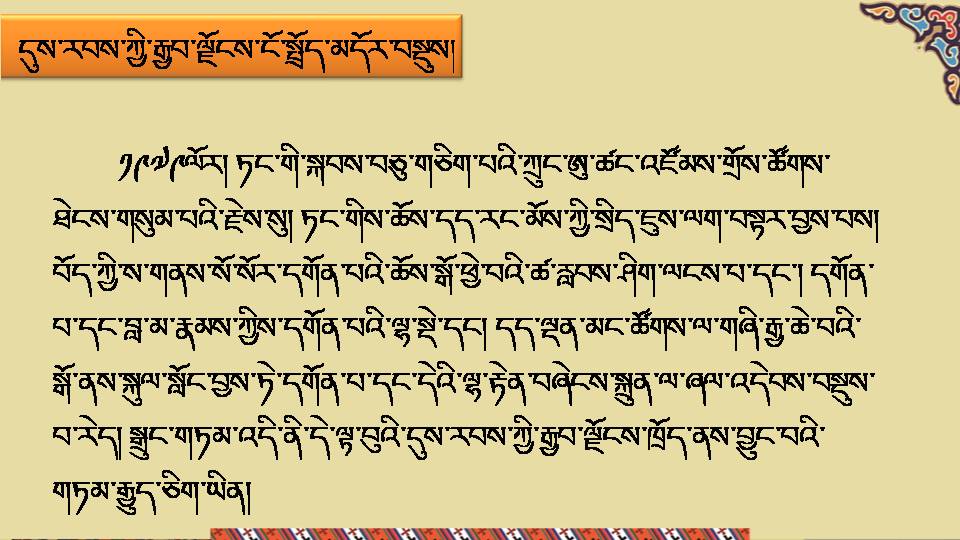 དུས་རབས་ཀྱི་རྒྱབ་ལྗོངས་ངོ་སྤྲོད་མདོར་བསྡུས།
༡༩༧༩ལོར། ཏང་གི་སྐབས་བཅུ་གཅིག་པའི་ཀྲུང་ཨུ་ཚང་འཛོམས་གྲོས་ཚོགས་
ཐེངས་གསུམ་པའི་རྗེས་སུ། ཏང་གིས་ཆོས་དད་རང་མོས་ཀྱི་སྲིད་ཇུས་ལག་བསྟར་བྱས་པས།
བོད་ཀྱི་ས་གནས་སོ་སོར་དགོན་པའི་ཆོས་སྒོ་ཕྱེ་བའི་ཚ་རླབས་ཤིག་ལངས་པ་དང་། དགོན་
པ་དང་བླ་མ་རྣམས་ཀྱིས་དགོན་པའི་ལྷ་སྡེ་དང། དད་ལྡན་མང་ཚོགས་ལ་གཞི་རྒྱ་ཆེ་བའི་
སྒོ་ནས་སྐུལ་སློང་བྱས་ཏེ་དགོན་པ་དང་དེའི་ལྷ་རྟེན་བཞེངས་སྐྲུན་ལ་ཞལ་འདེབས་བསྡུས་
པ་རེད། སྒྲུང་གཏམ་འདི་ནི་དེ་ལྟ་བུའི་དུས་རབས་ཀྱི་རྒྱབ་ལྗོངས་ཁྲོད་ནས་བྱུང་བའི་
གཏམ་རྒྱུད་ཅིག་ཡིན།